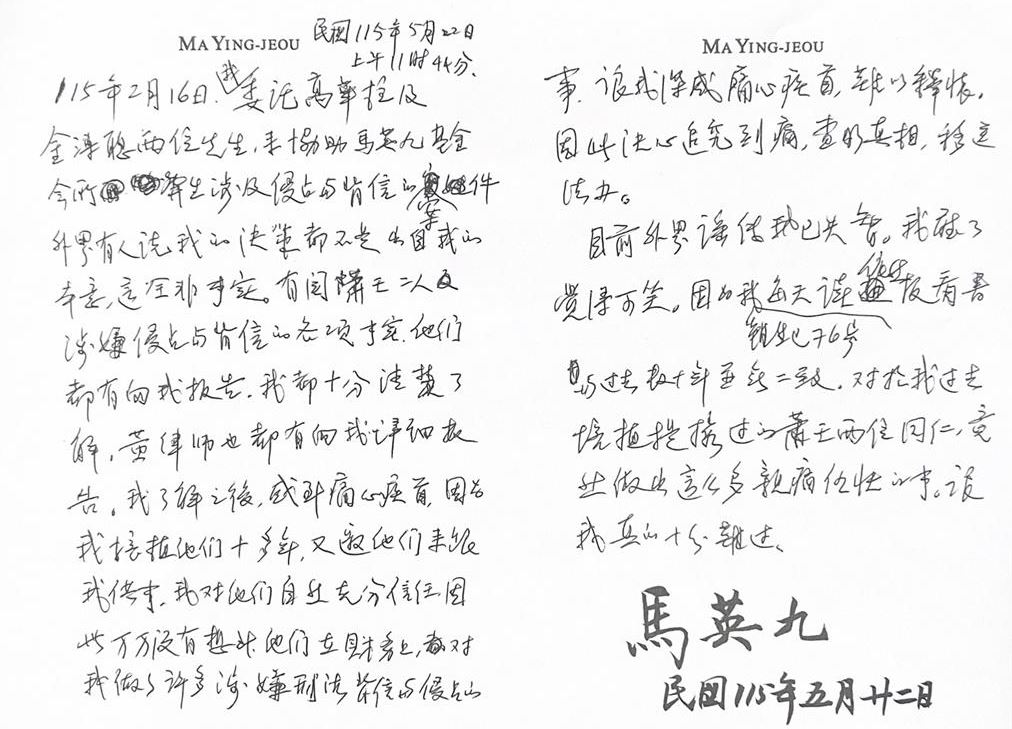 MA YING-JEOU
民國115年5月22日
上午11時44分.
115年2月16日,我委託高華柱及
金溥聰兩位先生,來協助馬英九基金
會所發生涉及侵占与背信的案件
外界有人說我的決策都不是出自我的
本意,這全非事實。有関蕭王二人
涉嫌侵占与背信的各項事實,他们
都有向我报告,我都十分清楚了
解,黃律师也都有向我详細报
告。我了解之後,感到痛心疾首,因为
我培植他们十多年,又邀他们来
我供事,我对他们自然充分信任因
此万万沒有想到他们在財務上,都对
我做了許多涉嫌刑法背信与侵占的
MA YING-JEOU
事,讓我深感痛心疾首,難以釋懷,
因此決心追究到底,查明真相,移送
法办。
目前外界謠传我已失智。我聽了
覺得可笑。因为我每天读报看書
体力
与过去数十年並無二致。对於我过去
培植提携过的蕭王兩位同仁,竟
然做出這么多親痛仇快的事,讓
我真的十分難过。
馬英九
民國115年五月廿二日